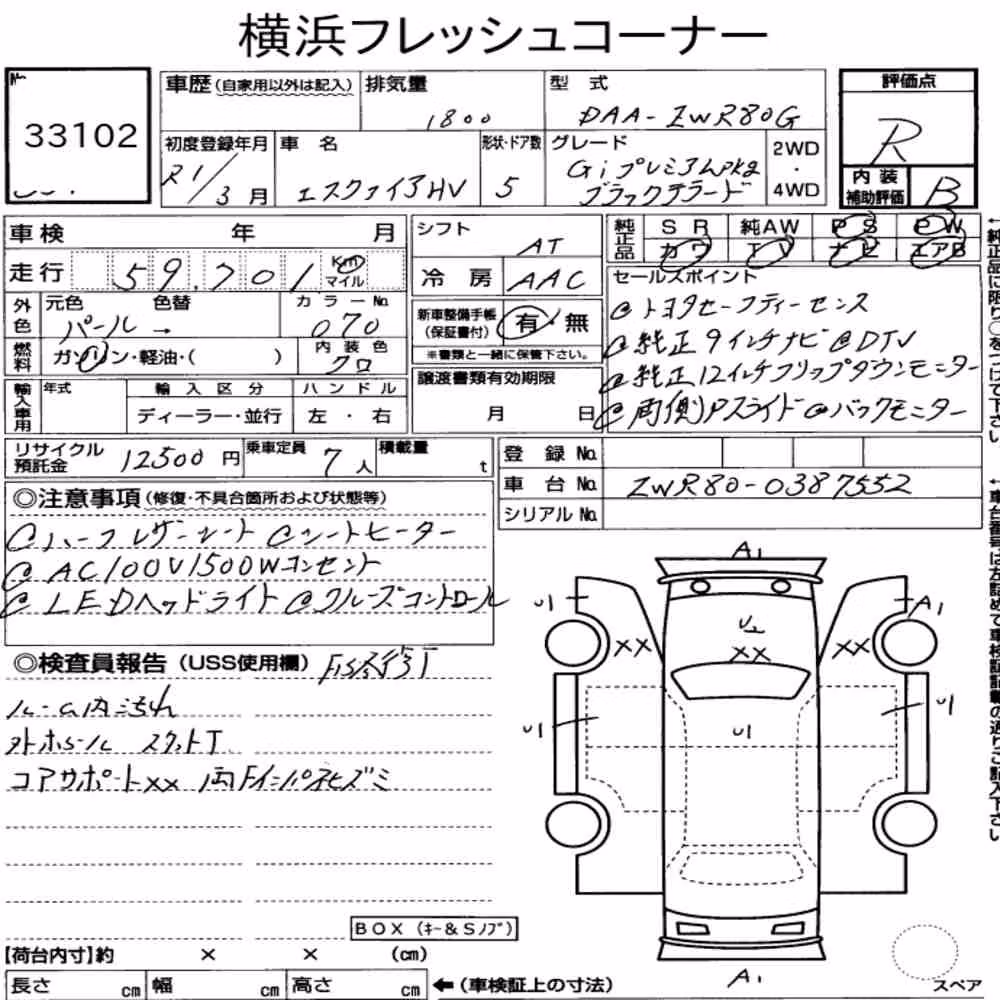 横浜フレッシュコーナー
33102
車歴(自家用以外は記入) 排気量 型式 評価点
1800 DAA-ZWR80G R
初度登録年月 車名 形状・ドア数 グレード 2WD・4WD
R1/3月 エスクァイアHV 5 Giプレミアムpkg
ブラックテラード
内装補助評価 B
車検 年 月
シフト AT
純正品 SR 純AW PS PW
カワ TV ナビ エアB
走行 59,701 Km マイル
冷房 AAC
セールスポイント
@トヨタセーフティーセンス
@純正9インチナビ @DTV
@純正12インチフリップダウンモニター
@両側Pスライド @バックモニター
外色 元色 色替 カラーNo.
パール → 070
新車整備手帳(保証書付) 有・無
※書類と一緒に保管下さい。
燃料 ガソリン・軽油・( ) 内装色 クロ
譲渡書類有効期限
月 日
輸入車用 年式 輸入区分 ハンドル
ディーラー・並行 左・右
リサイクル預託金 12500円 乗車定員 7人 積載量 t
登録No.
車台No. ZWR80-0387552
シリアルNo.
◎注意事項(修復・不具合箇所および状態等)
@ハーフレザーシート @シートヒーター
@AC100V1500Wコンセント
@LEDヘッドライト @クルーズコントロール
◎検査員報告(USS使用欄)
ルーム内汚れ
コアサポートXX 両Fインパネヒズミ
A1
U1 A1
XX U2 XX XX
U1 U1 U1
A1
BOX(キー&Sノブ)
【荷台内寸】約 × × (cm)
長さ cm 幅 cm 高さ cm ←(車検証上の寸法)
スペア
←純正品に限り○をつけて下さい
←車台番号は左詰めで車検証記載の通りご記入下さい